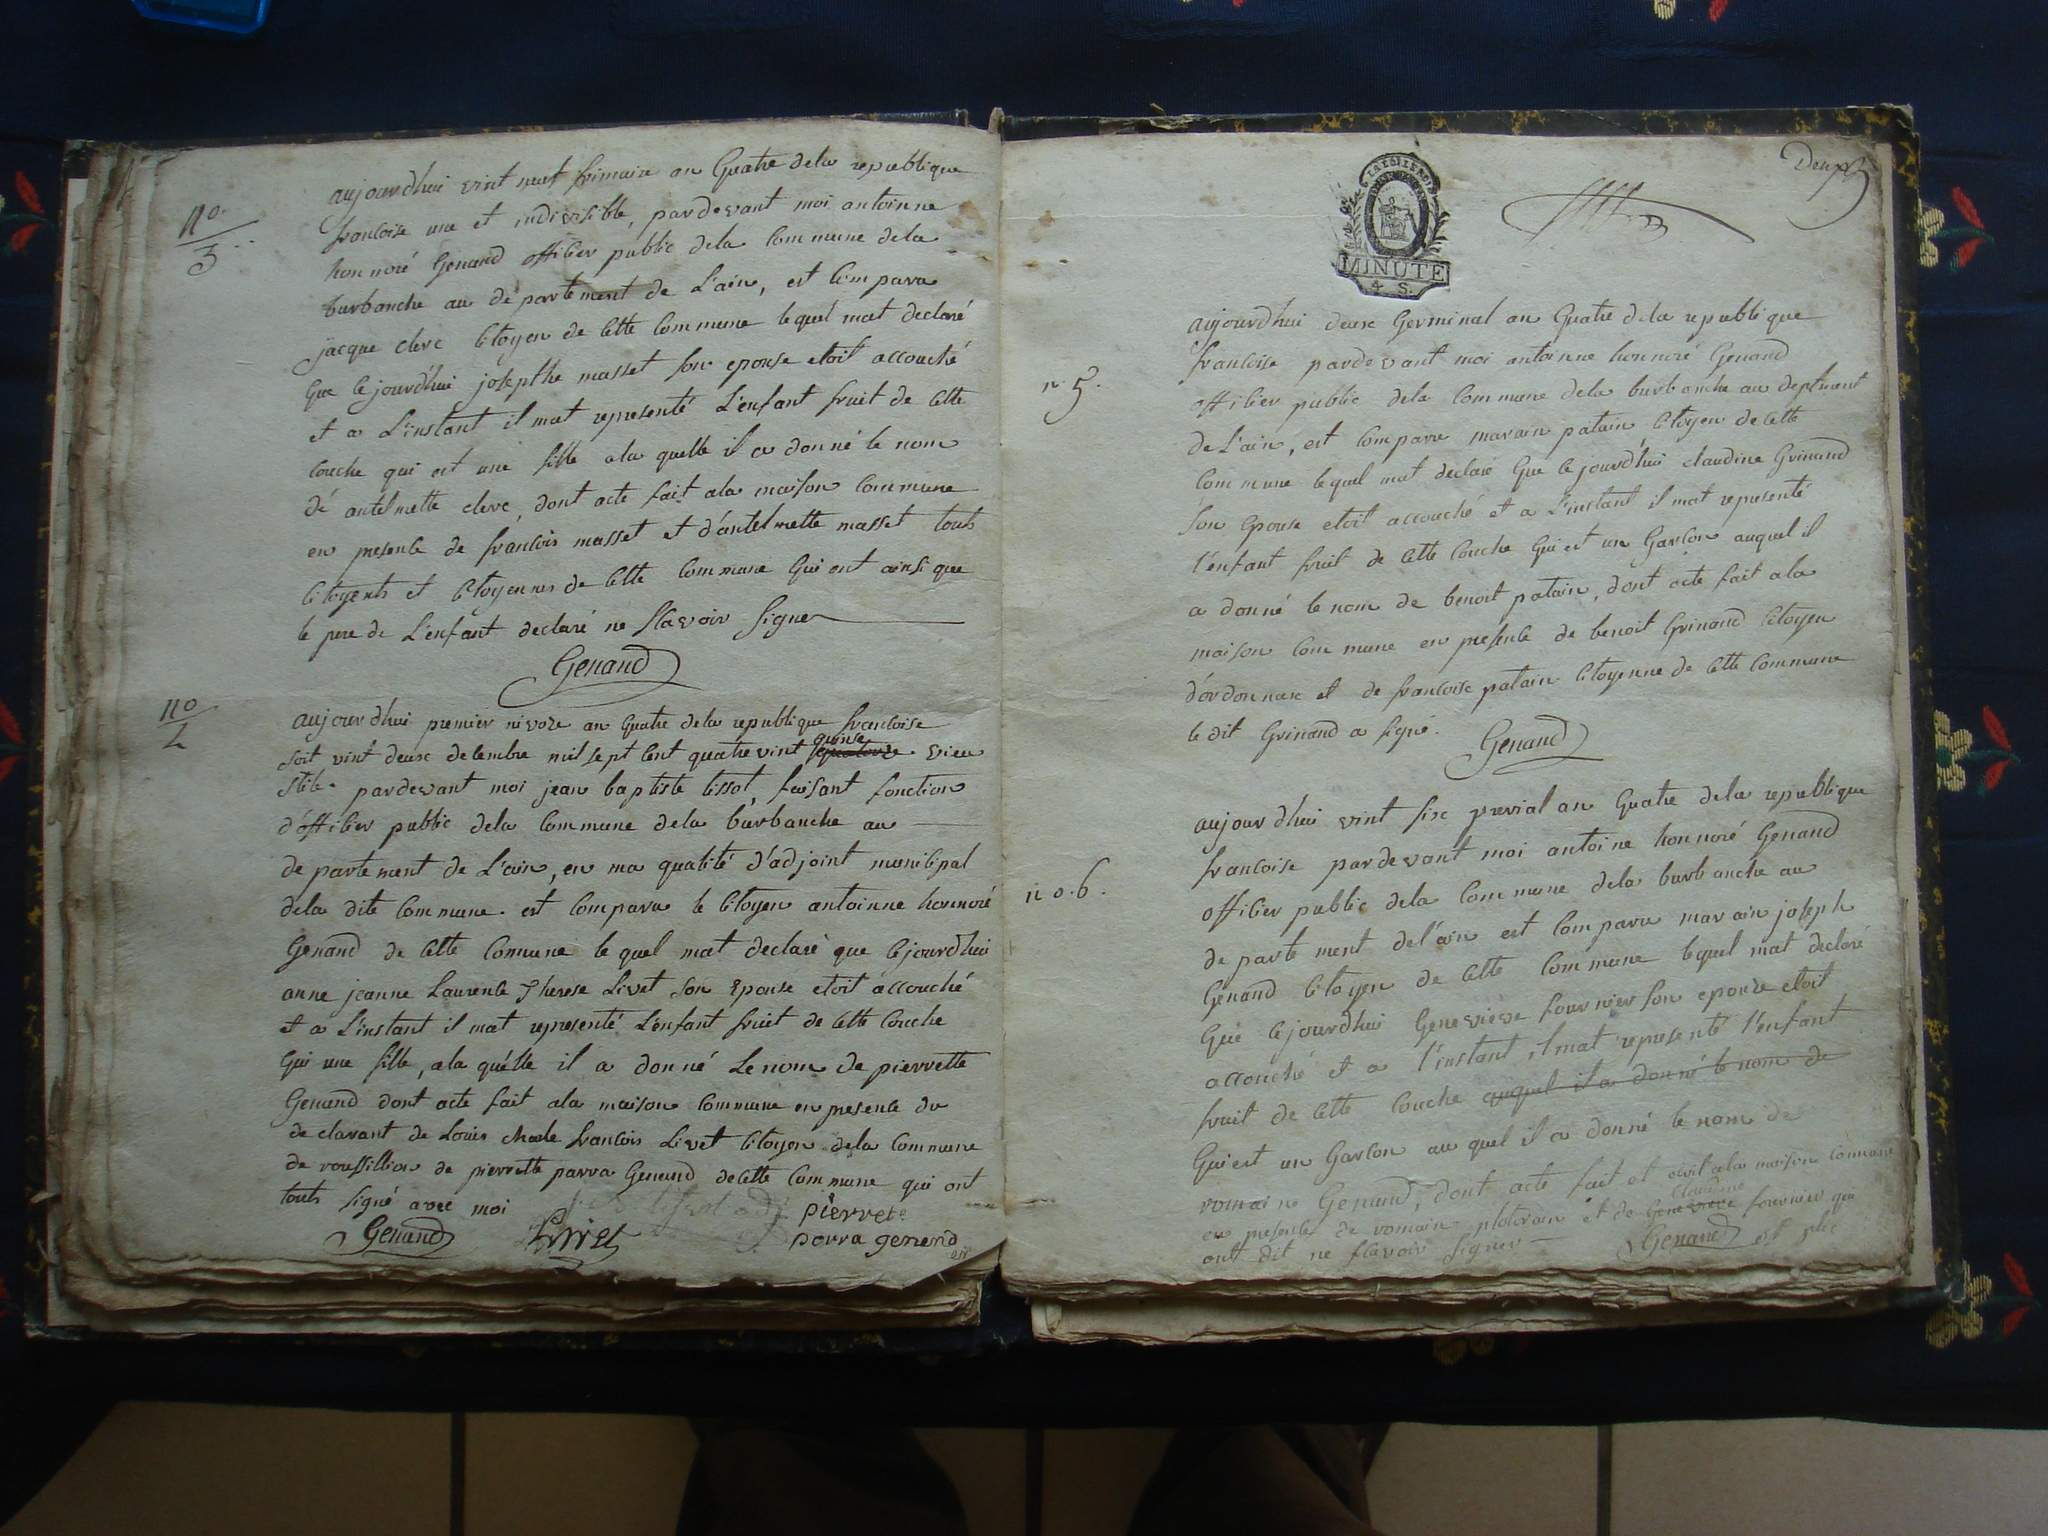 no.
3
aujourdhui vint neuf frimaire an Quatre dela republique
francoise une et indivisible, pardevant moi antoinne
honnoré Genand officier public dela Commune dela
burbanche au departement de L'ain, est Compara
jacque clerc Citoyen de Cette Commune lequel mat declaré
que Cejourdhui josepthe masset son epouse etoit accouché
et a L'instant il mat representé L'enfant fruit de Cette
Couche qui est une fille ala quelle il a donné le nom
dé antelmette clerc, dont acte fait ala maison Commune
en presence de francois masset et d'antelmette masset touts
Citoyents et Citoyennes de Cette Commune Qui ont ainsi que
le pere de L'enfant declaré ne Scavoir Signer
Genand
no
4
aujourdhui premier nivoze an Quatre dela republique francoise
soit vint deux decembre mil sept Cent quatrevint quinse quatorze vieu
stile. pardevant moi jean baptiste tissot, faisant fonction
d'officier public dela Commune dela burbanche au
departement de L'ain, en ma qualité d'adjoint municipal
dela dite Commune. est Compara le Citoyen antoinne honnoré
Genand de Cette Comune le quel mat declaré que Cejourdhui
anne jeanne Laurence Therese Livet son Epouse etoit accouché
et a L'instant il mat representé L'enfant fruit de Cette Couche
Qui une fille, ala quélle il a donné Le nom de pierrette
Genand dont acte fait ala maison Commune en presence du
declarant de Louis charle francois Livet Citoyen dela Commune
de roussillion de pierrette parra Genand de Cette Commune qui ont
touts signé avec moi
Genand Livet pierrete
parra genend
Deux
MINUTE
4 S.
n. 5.
aujourdhui deux Germinal an Quatre dela republique
francoise pardevant moi antoinne honnoré Genand
officier public dela Commune dela burbanche au deptment
de L'ain, est Comparu marain patain Citoyen de Cette
Commune lequel mat declaré Que Cejourdhui claudine Grinand
son Epouse etoit accouché et a L'instant il mat representé
l'enfant fruit de Cette Couche Qui est un Garcon auquel il
a donné le nom de benoit patain, dont acte fait ala
maison Commune en présence de benoit Grinand Citoyen
d'ordonnax et de francoise patain Citoyenne de Cette Commune
le dit Grinand a signé.
Genand
no. 6.
aujourdhui vint six prerial an Quatre dela republique
francoise pardevant moi antoine honnoré Genand
officier public dela Commune dela burbanche au
departement del'ain est Comparu marain joseph
Genand Citoyen de Cette Commune lequel mat declaré
Que Cejourdhui Genevieve fournier son epouze etoit
accouché et a l'instant il mat representé l'enfant
fruit de Cette Couche auquel il a donné le nom de
Qui est un Garcon au quel il a donné le nom de
romain Genand, dont acte fait et ala maison Commune
en presence de romain et de claudine Genevieve fournier qui
ont dit ne scavoir signer Genand